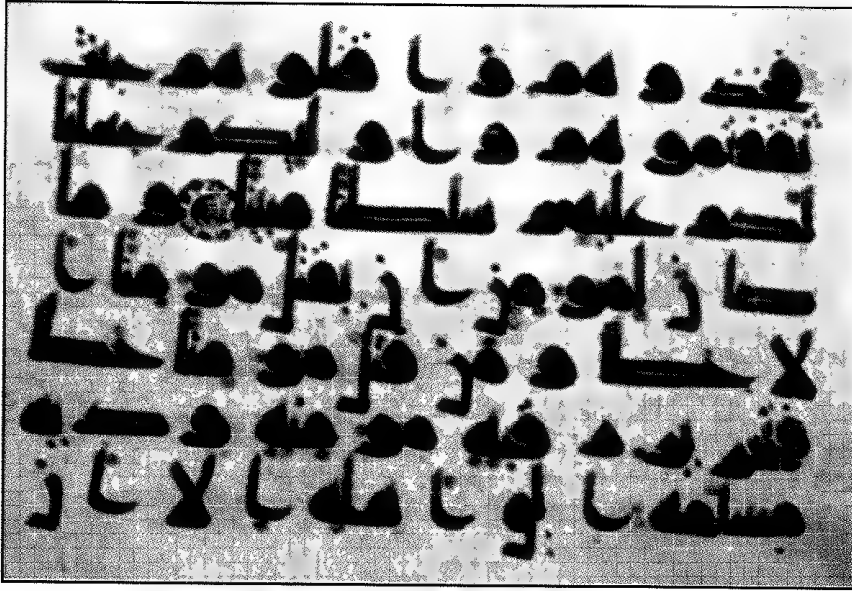 فخذوهم واقتلوهم حيث
ثقفتموهم واولئكم جعلنا
لكم عليهم سلطنا مبينا وما
كان لمومن ان يقتل مومنا ا
لا خطا ومن قتل مومنا خطا
فتحرير رقبة مومنة ودية
مسلمة الى اهله الا ان